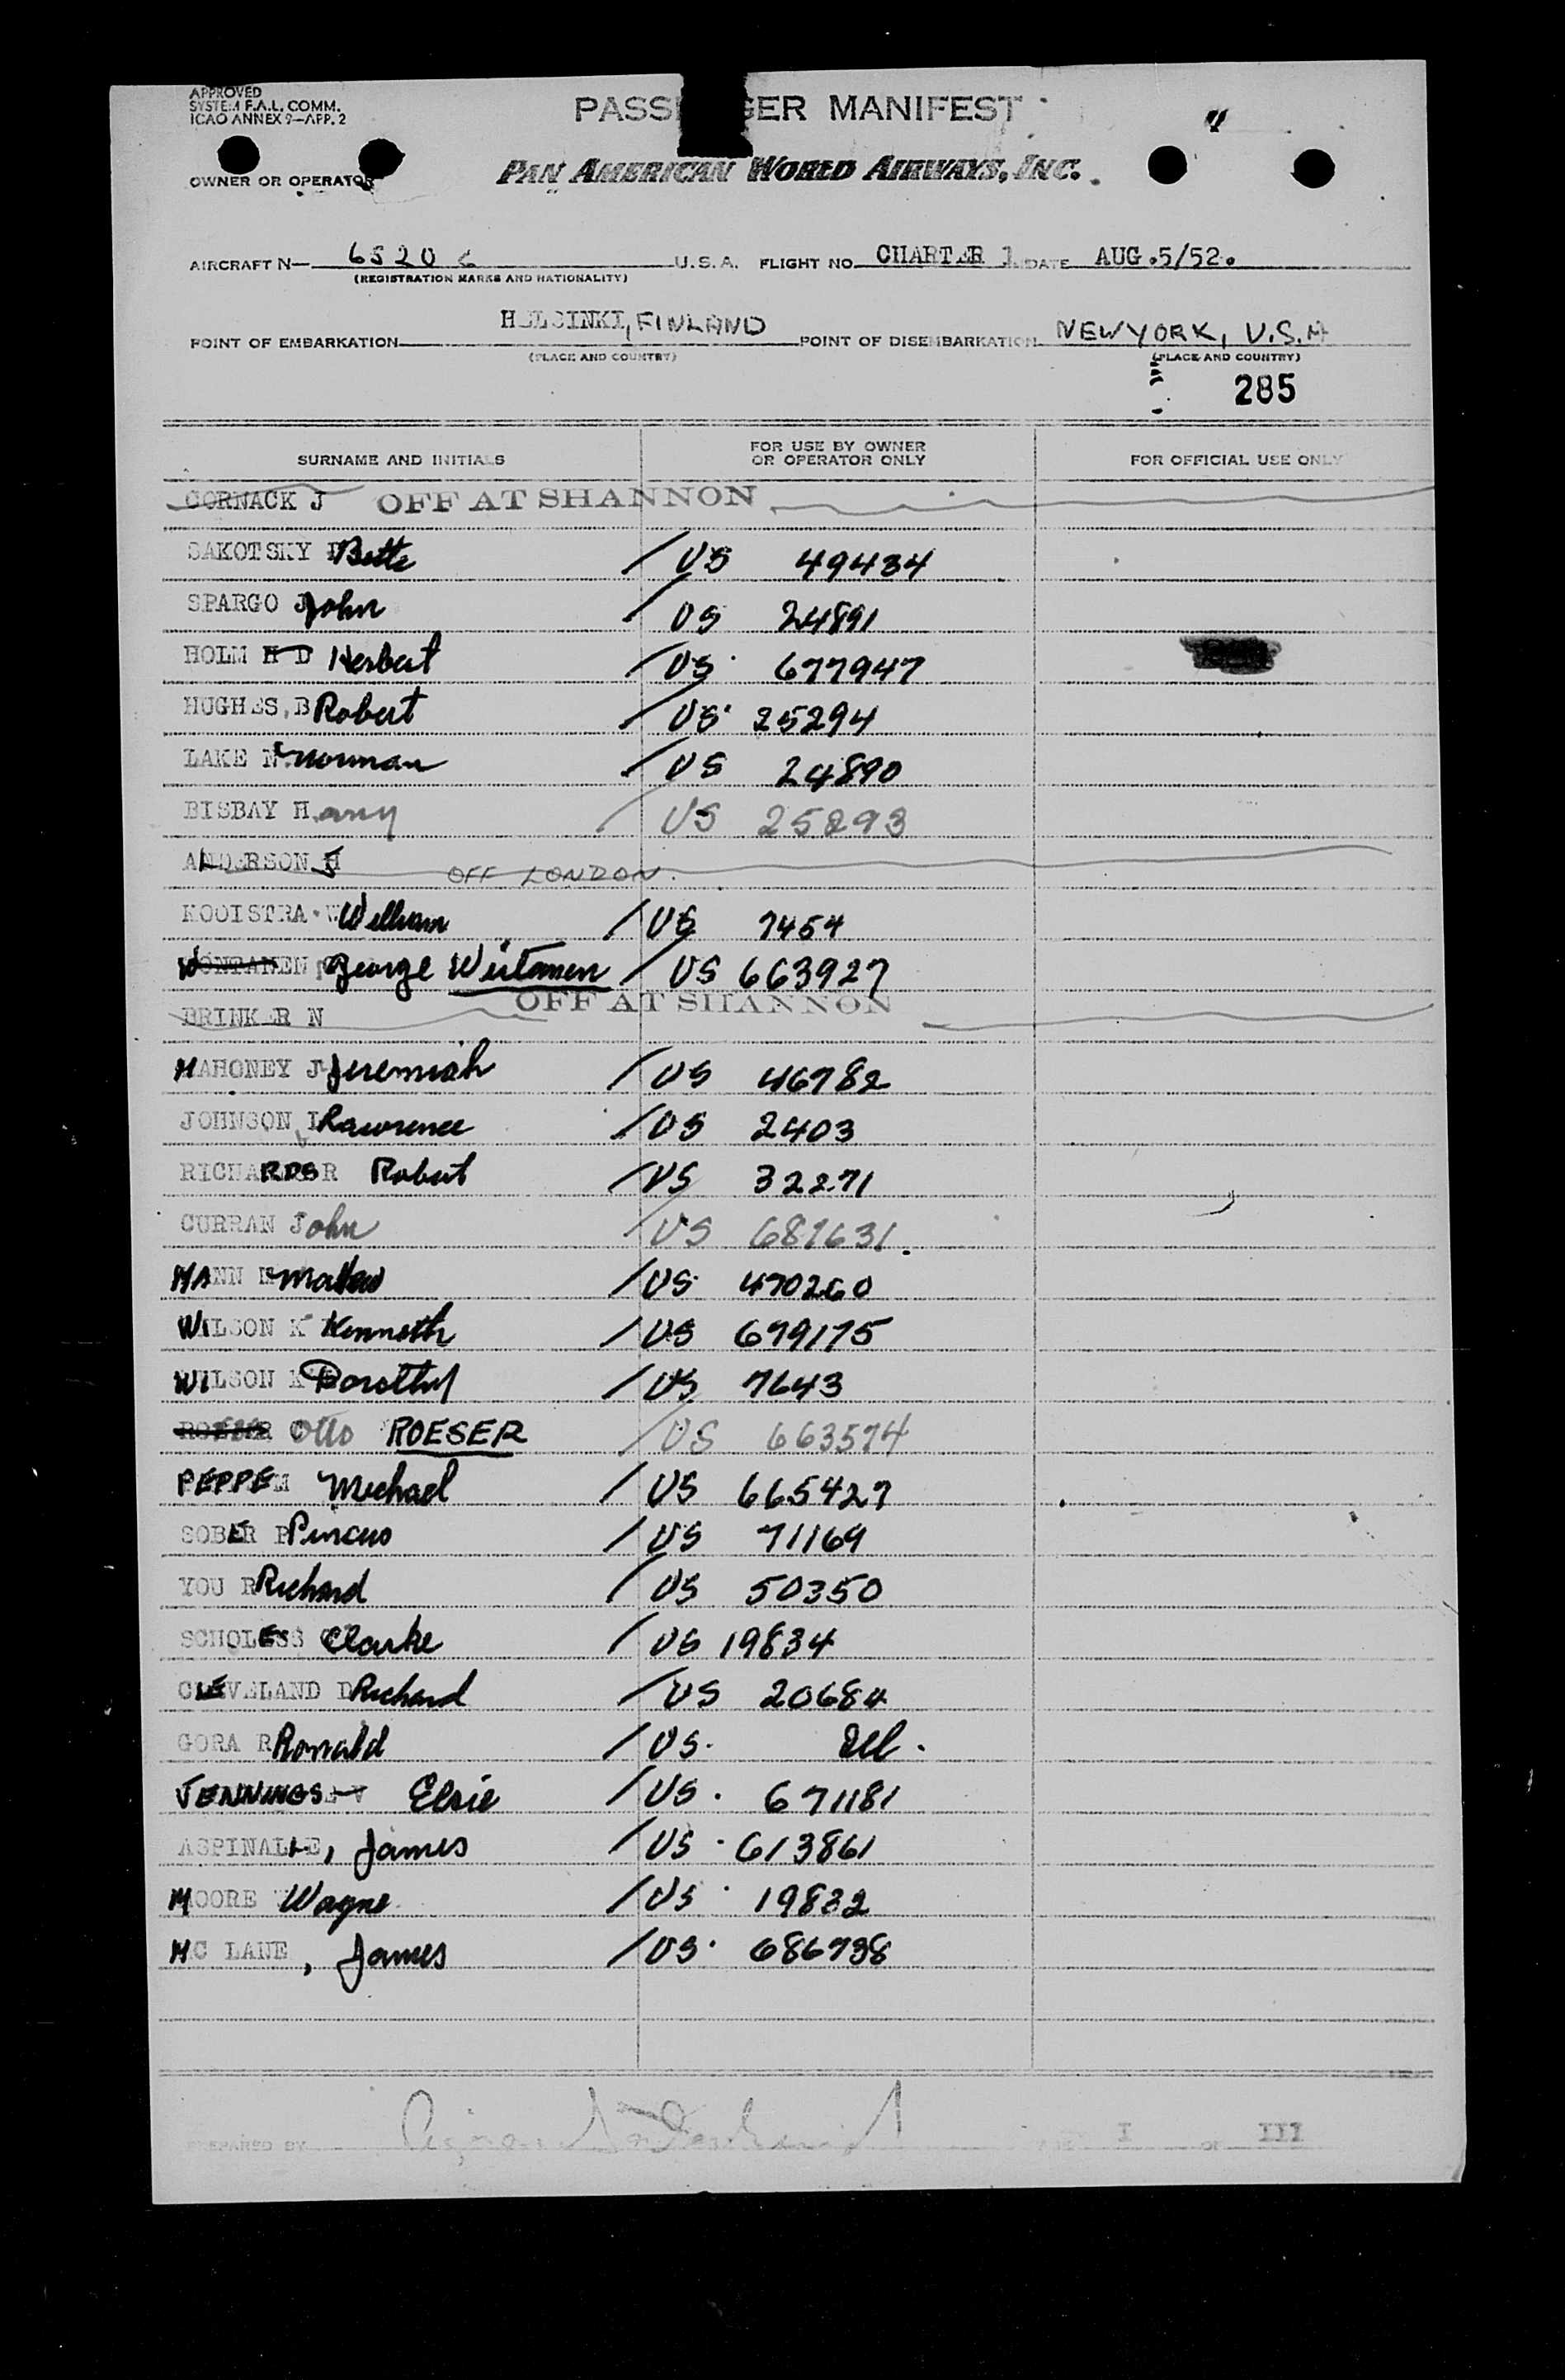 APPROVED
SYSTEM F.A.L. COMM.
ICAO ANNEX 9—APP. 2
PASS GER MANIFEST
OWNER OR OPERATOR
PAN AMERICAN WORLD AIRWAYS, INC.
AIRCRAFT N— 6520 U.S.A. FLIGHT NO. CHARTER 1 DATE AUG.5/52.
(REGISTRATION MARKS AND NATIONALITY)
POINT OF EMBARKATION HELSINKI, FINLAND POINT OF DISEMBARKATION NEW YORK, U.S.A
(PLACE AND COUNTRY) (PLACE AND COUNTRY)
285
SURNAME AND INITIALS FOR USE BY OWNER OR OPERATOR ONLY FOR OFFICIAL USE ONLY
CORNACK J OFF AT SHANNON
SAKOTSKY Bette / US 49434
SPARGO John / US 24891
HOLM H D Herbert / US 677947
HUGHES, B Robert / US 25294
LAKE N. Norman / US 24890
BISBAY Harry / US 25293
ANDERSON H OFF LONDON.
KOOISTRA W William / US 7454
George Wiitanen / US 663927
BRINKER N OFF AT SHANNON
MAHONEY J Jeremiah / US 46782
JOHNSON, L Lawrence / US 2403
RICHARDS R Robert / US 32271
CURRAN John / US 687631.
MANN Mathew / US 470260
WILSON K Kenneth / US 679175
WILSON K Dorothy / US 7643
Otto ROESER / US 663574
PEPPE M Michael / US 665427
SOBER P Pincus / US 71169
YOU R Richard / US 50350
SCHOLES Clarke / US 19834
CLEVELAND D Richard / US 20684
GORA R Ronald / US.
JENNINGS Elsie / US. 671181
ASPINALL, James / US 613861
MOORE Wayne / US 19832
MC LANE, James / US 686738
PREPARED BY I OF III